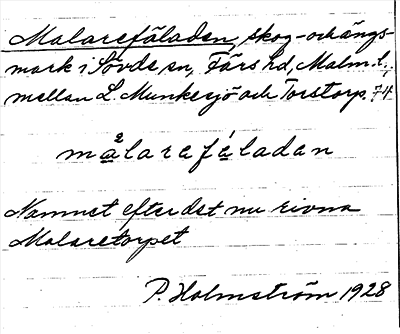 Malarefäladen, skog- och ängs-
mark i Sövde sn, Färs hd, Malm. l.,
mellan L. Munkesjö och Torstorp. 74
målarafáladan
Namnet efter det nu rivna
Malaretorpet
P. Holmström 1928